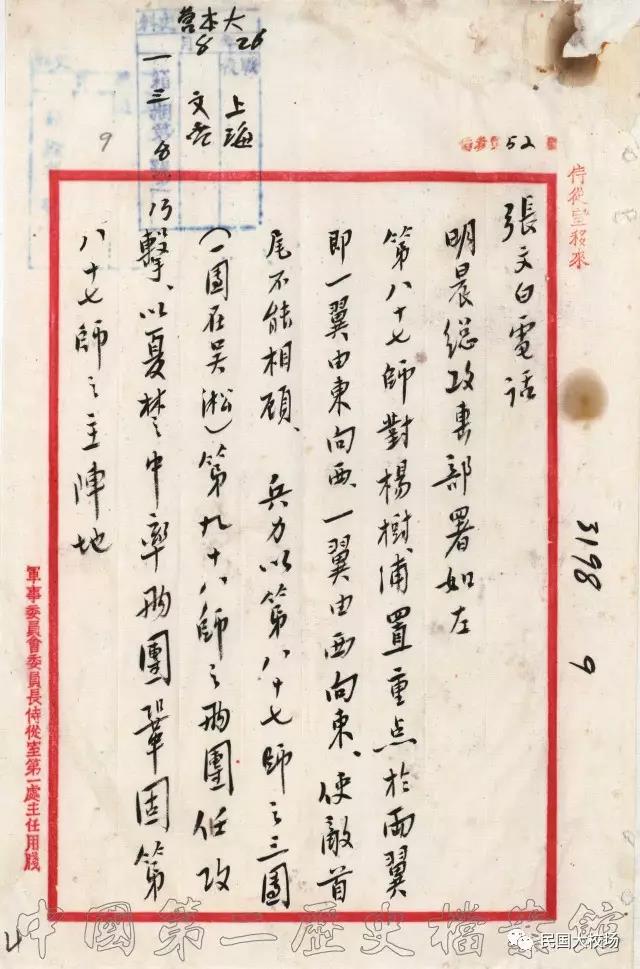 侍從室移來
3198 9
52
張文白電話
明晨総攻击部署如左
第八十七師對楊樹浦置重点於两翼
即一翼由東向西、一翼由西向東、使敵首
尾不能相顧、兵力以第八十七師之三團
(一團在吴淞)第九十八師之两團任攻
擊、以夏楚中率两團鞏固第
八十七師之主陣地
大 26 上海
本 8
一三 8
9
軍事委員會委員長侍從室第一處主任用牋
中國第二歷史檔案館
民国大校场